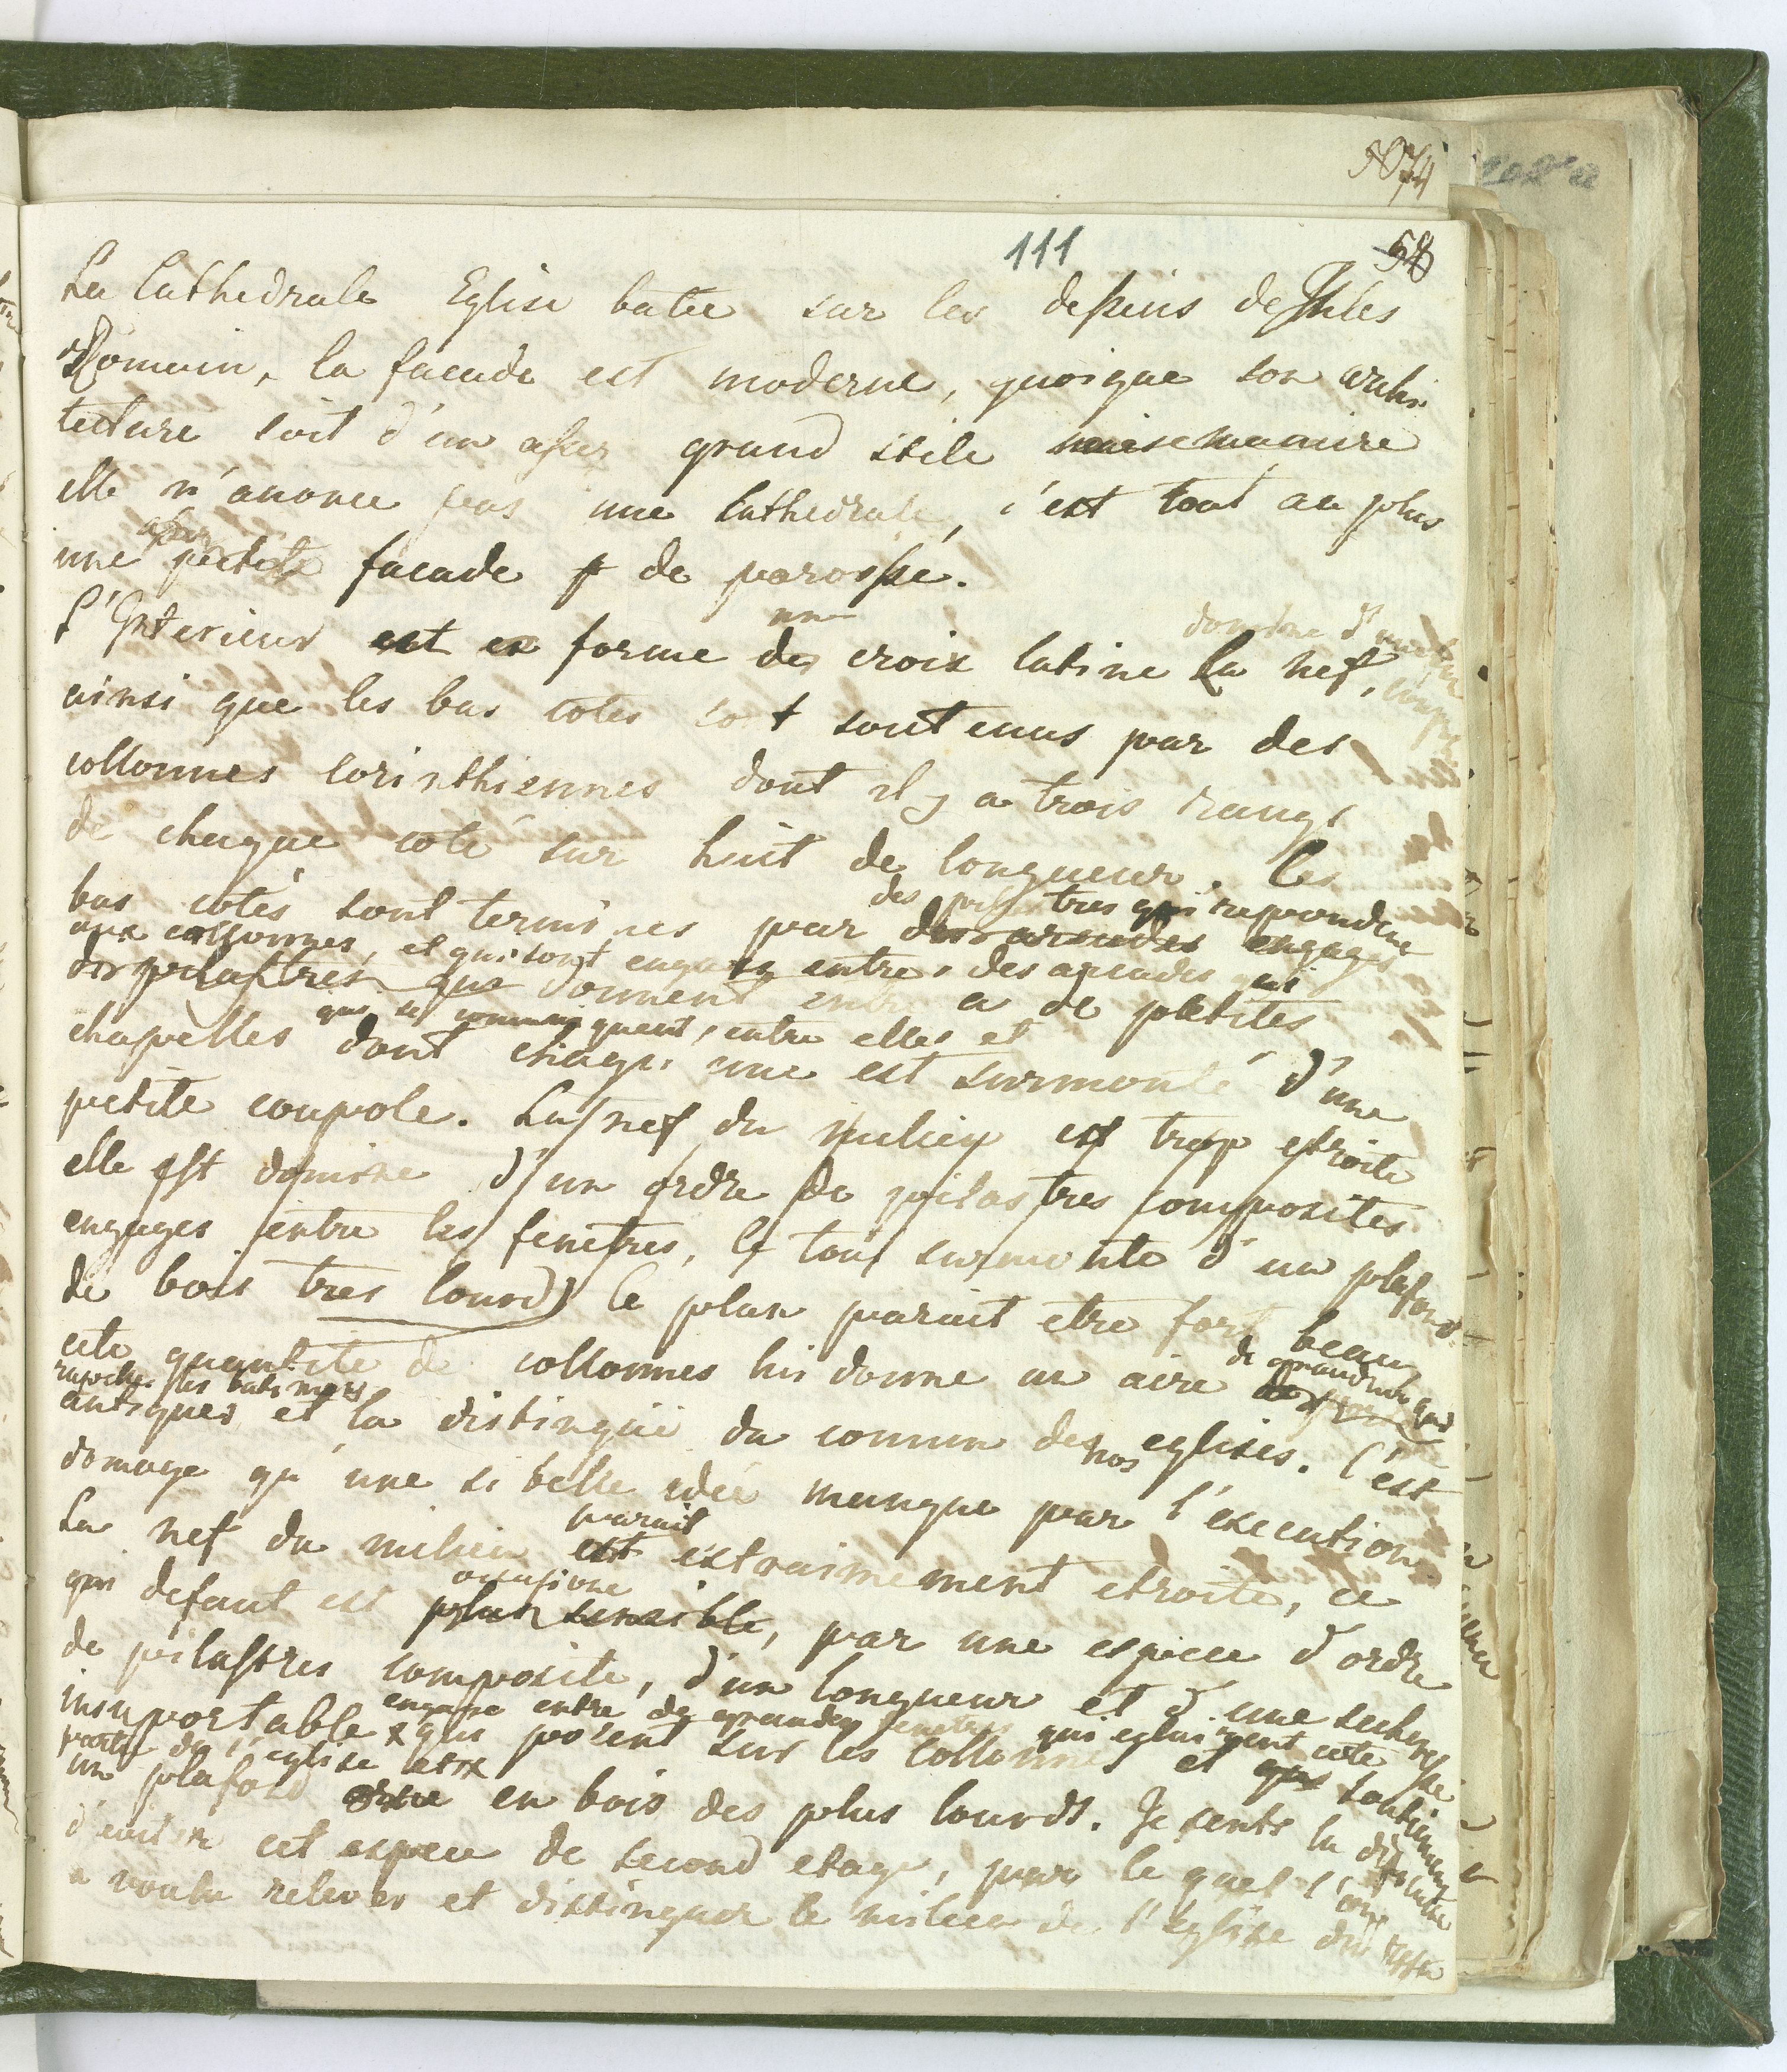 74
111
58
La Cathedrale Eglise batie sur les desseins de Jules
Romain, la facade est moderne, quoique son archi
tecture soit d'un assez grand stile
elle n'anonce pas une Cathedrale, c'est tout au plus
assez
une petite facade de paroisse.
une
domine d'
L'Interieur est en forme de croix latine la nef,
ainsi que les bas cotes sont soutenus par des
collonnes corinthiennes dont il y a trois rangs
de chaque coté sur huit de longueur. les
des pilastres qui repondent
bas cotés sont terminés par des arcades engagés
aux collonnes, et qui sont engagés entre des arcades qui
des pilastres que donnent entre a de petites
qui se communiquent, entre elles et
chapelles dont chaqu'une est surmonté d'une
petite coupole. La nef du milieu est trop etroite
elle est dominé d'un ordre de pilastres composites
engages entre les fenetres, le tout surmonte d'un plafond
de bois tres lourd) le plan parait etre fort beau
cete quantité de collonnes lui donne un aire
de grandeur qui
rapelle les batimens
antiques et la distingue du comun de nos eglises. C'est
domage qu'une si belle idée manque par l'execution
parait
La nef du milieu est extraimement etroite, ce
occasione
qui defaut est plus sensible, par une espece d'ordre
de pilastres composite, d'un longueur et d'une secheresse
engagé entre de grandes fenetres qui eclairent cete
insuportable qui posent sur les collonnes et qui soutiennent
partie de l'eglise
un plafond en bois des plus lourds. Je sents la dificulté
d'eviter cet espece de second etage, par le quel l'on
a voulu relever et distinguer le milieu de l'Eglise du reste